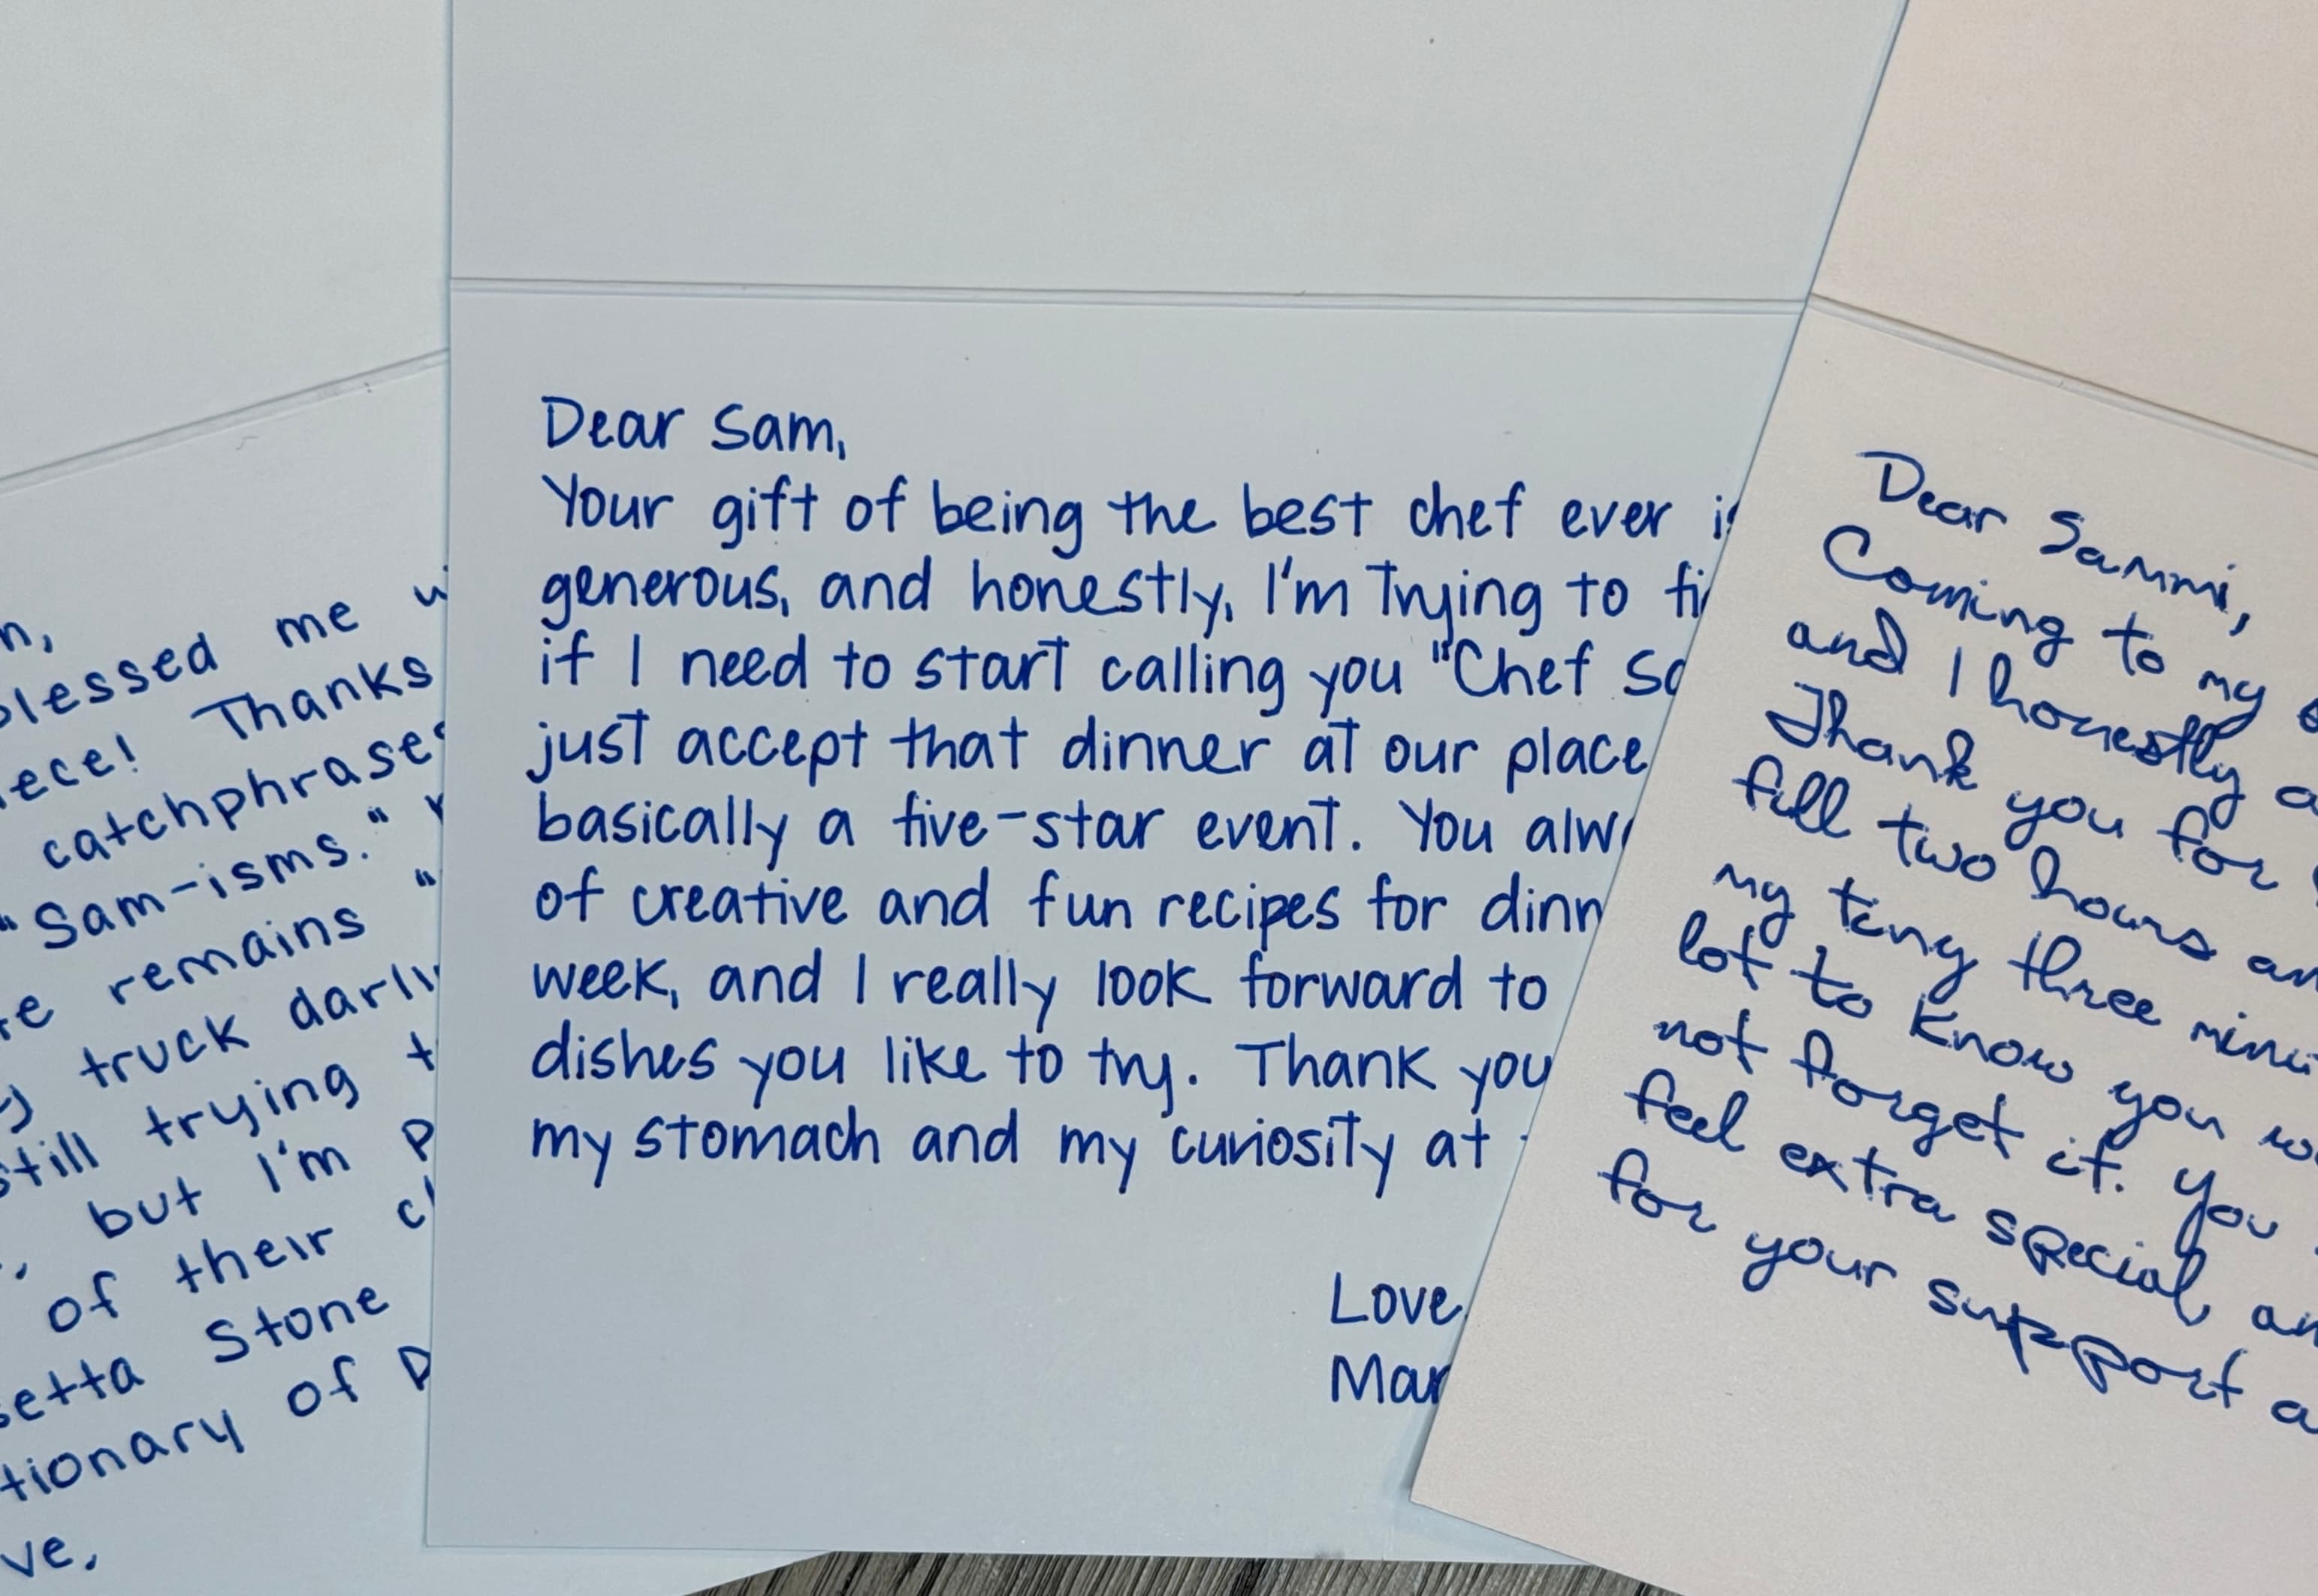 me
Thanks
catchphrases
"Sam-isms."
remains "
truck
still trying
, but I'm
of their
Stone
of
Dear Sam,
Your gift of being the best chef ever
generous, and honestly, I'm trying to
if I need to start calling you "Chef
just accept that dinner at our place
basically a five-star event. You
of creative and fun recipes for
week, and I really look forward to
dishes you like to try. Thank you
my stomach and my curiosity at
Love,
Dear Sammi,
Coming to my
and I honestly
Thank you for
full two hours
my tiny three
lot to know you
not forget it. You
feel extra special,
for your support